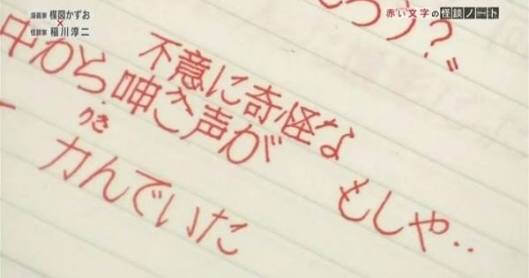 漫画家 楳図かずお
×
怪談家 稲川淳二
赤い文字の怪談ノート
ろう?〟
不意に奇怪な
中から呻き声が
うき
もしや..
力んでいた